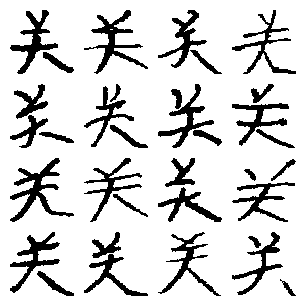 关关关关
关关关关
关关关关
关关关关